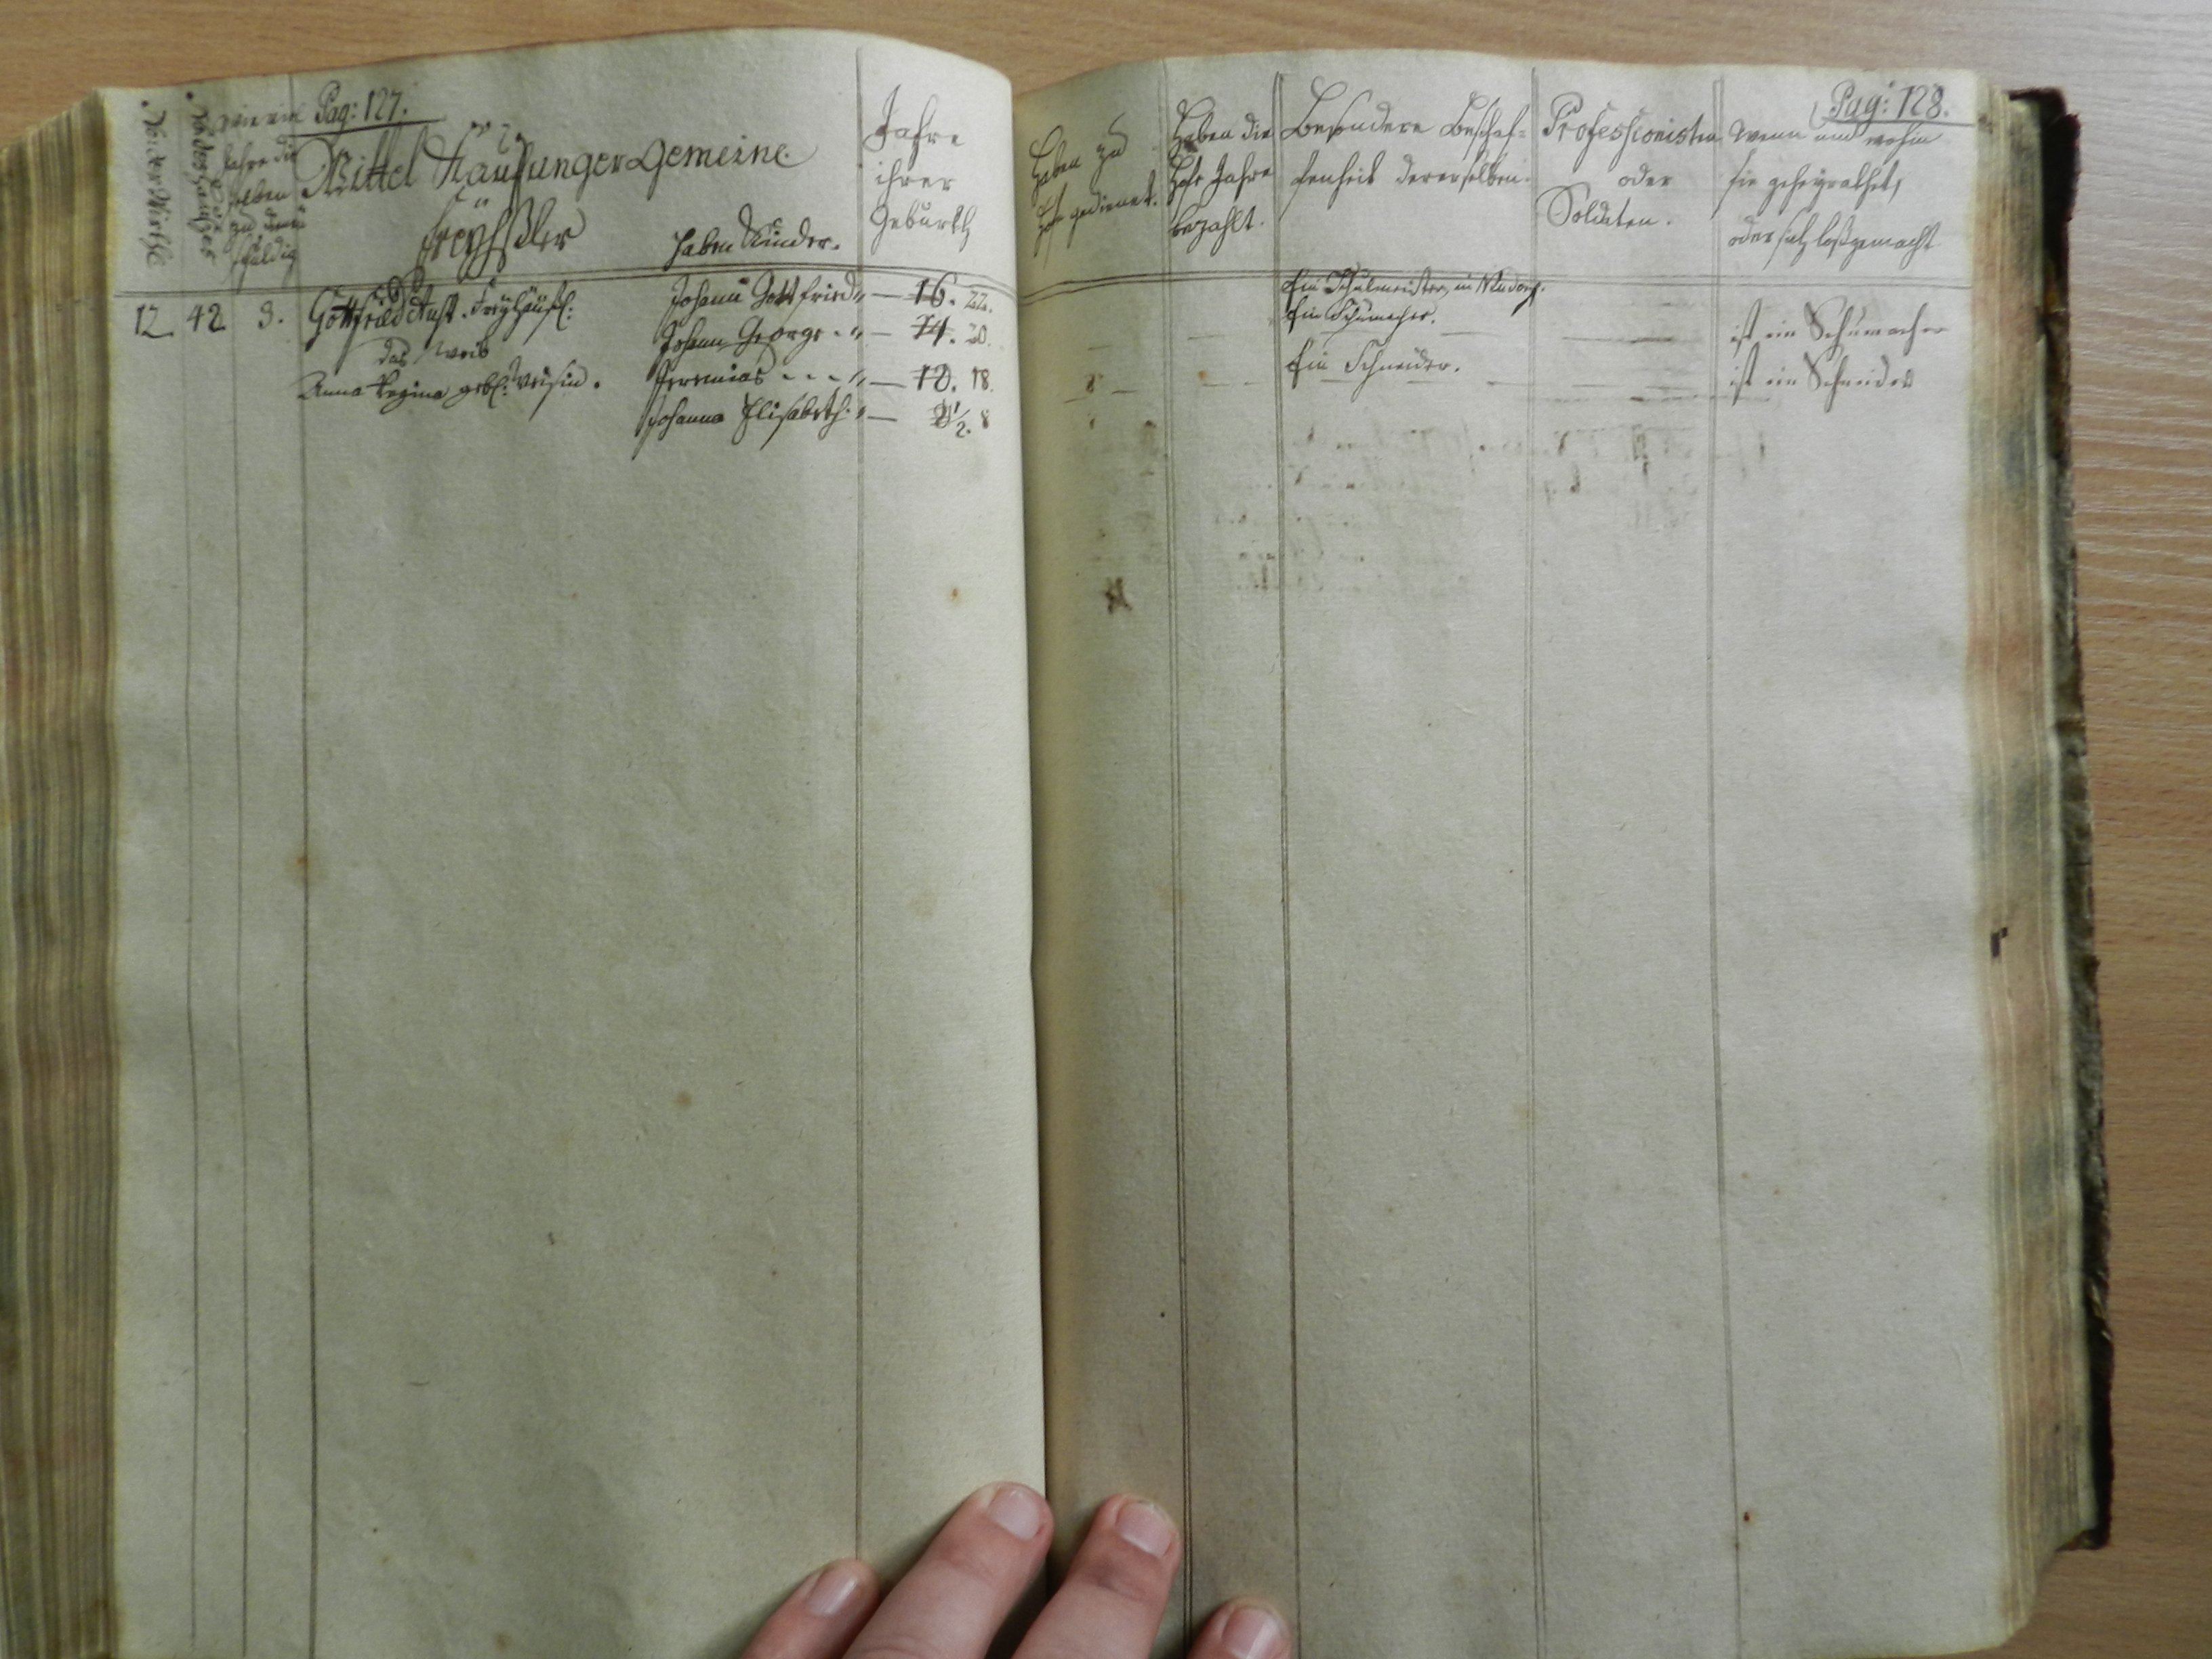 Pag: 127.
No: der Wirthe
No: des Hauses
wie viel
Jahre die
selben
zu
schuldig
Mittel Kauffunger Gemeine.
Freyhäßler
haben Kinder.
Jahre
ihrer
Geburth
12 42 3. Gottfried Aust. Freyhäußl:
das Weib
Anna Regina gebl:
Johann Gottfried " — 16. 22.
Johann George - " — 14. 20.
Jeremias - - - " — 12. 18.
Johanna Elisabeth: " — 2 1/2. 8
Pag: 128.
Haben zu
Hofe gedienet.
Haben die
Hofe Jahre
bezahlt.
Besondere Beschaf=
fenheit dererselben.
Professionisten
oder
Soldaten.
Wenn und wohin
sie geheyrathet,
oder sich loßgemacht
Ein Schulmeister, in
Ein Schumacher.
Ein Schneider.
ist ein Schumacher
ist ein Schneider